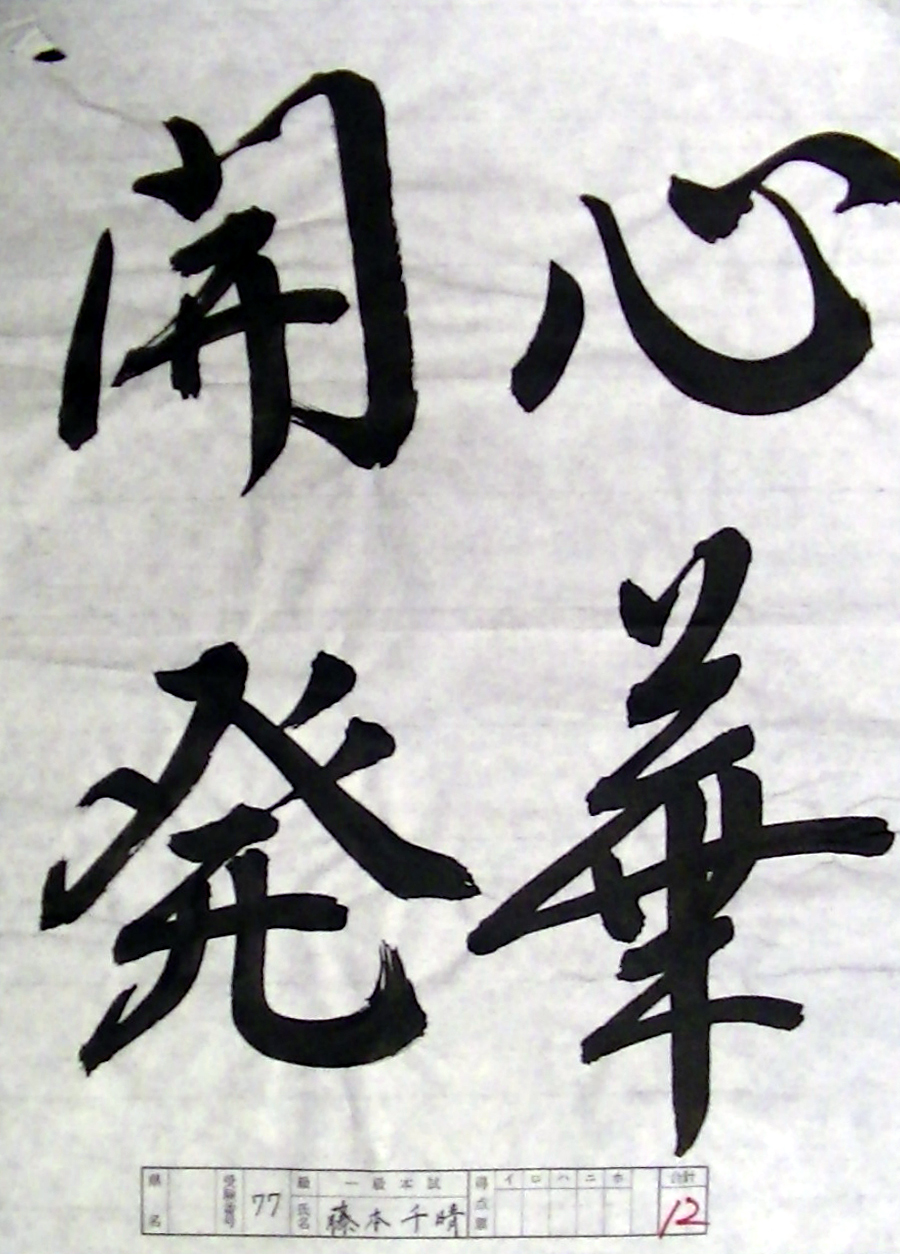 心華
開発
県名
受験番号 77
級 一級本試
氏名 藤本千晴
得点票 イ ロ ハ ニ ホ
合計 12